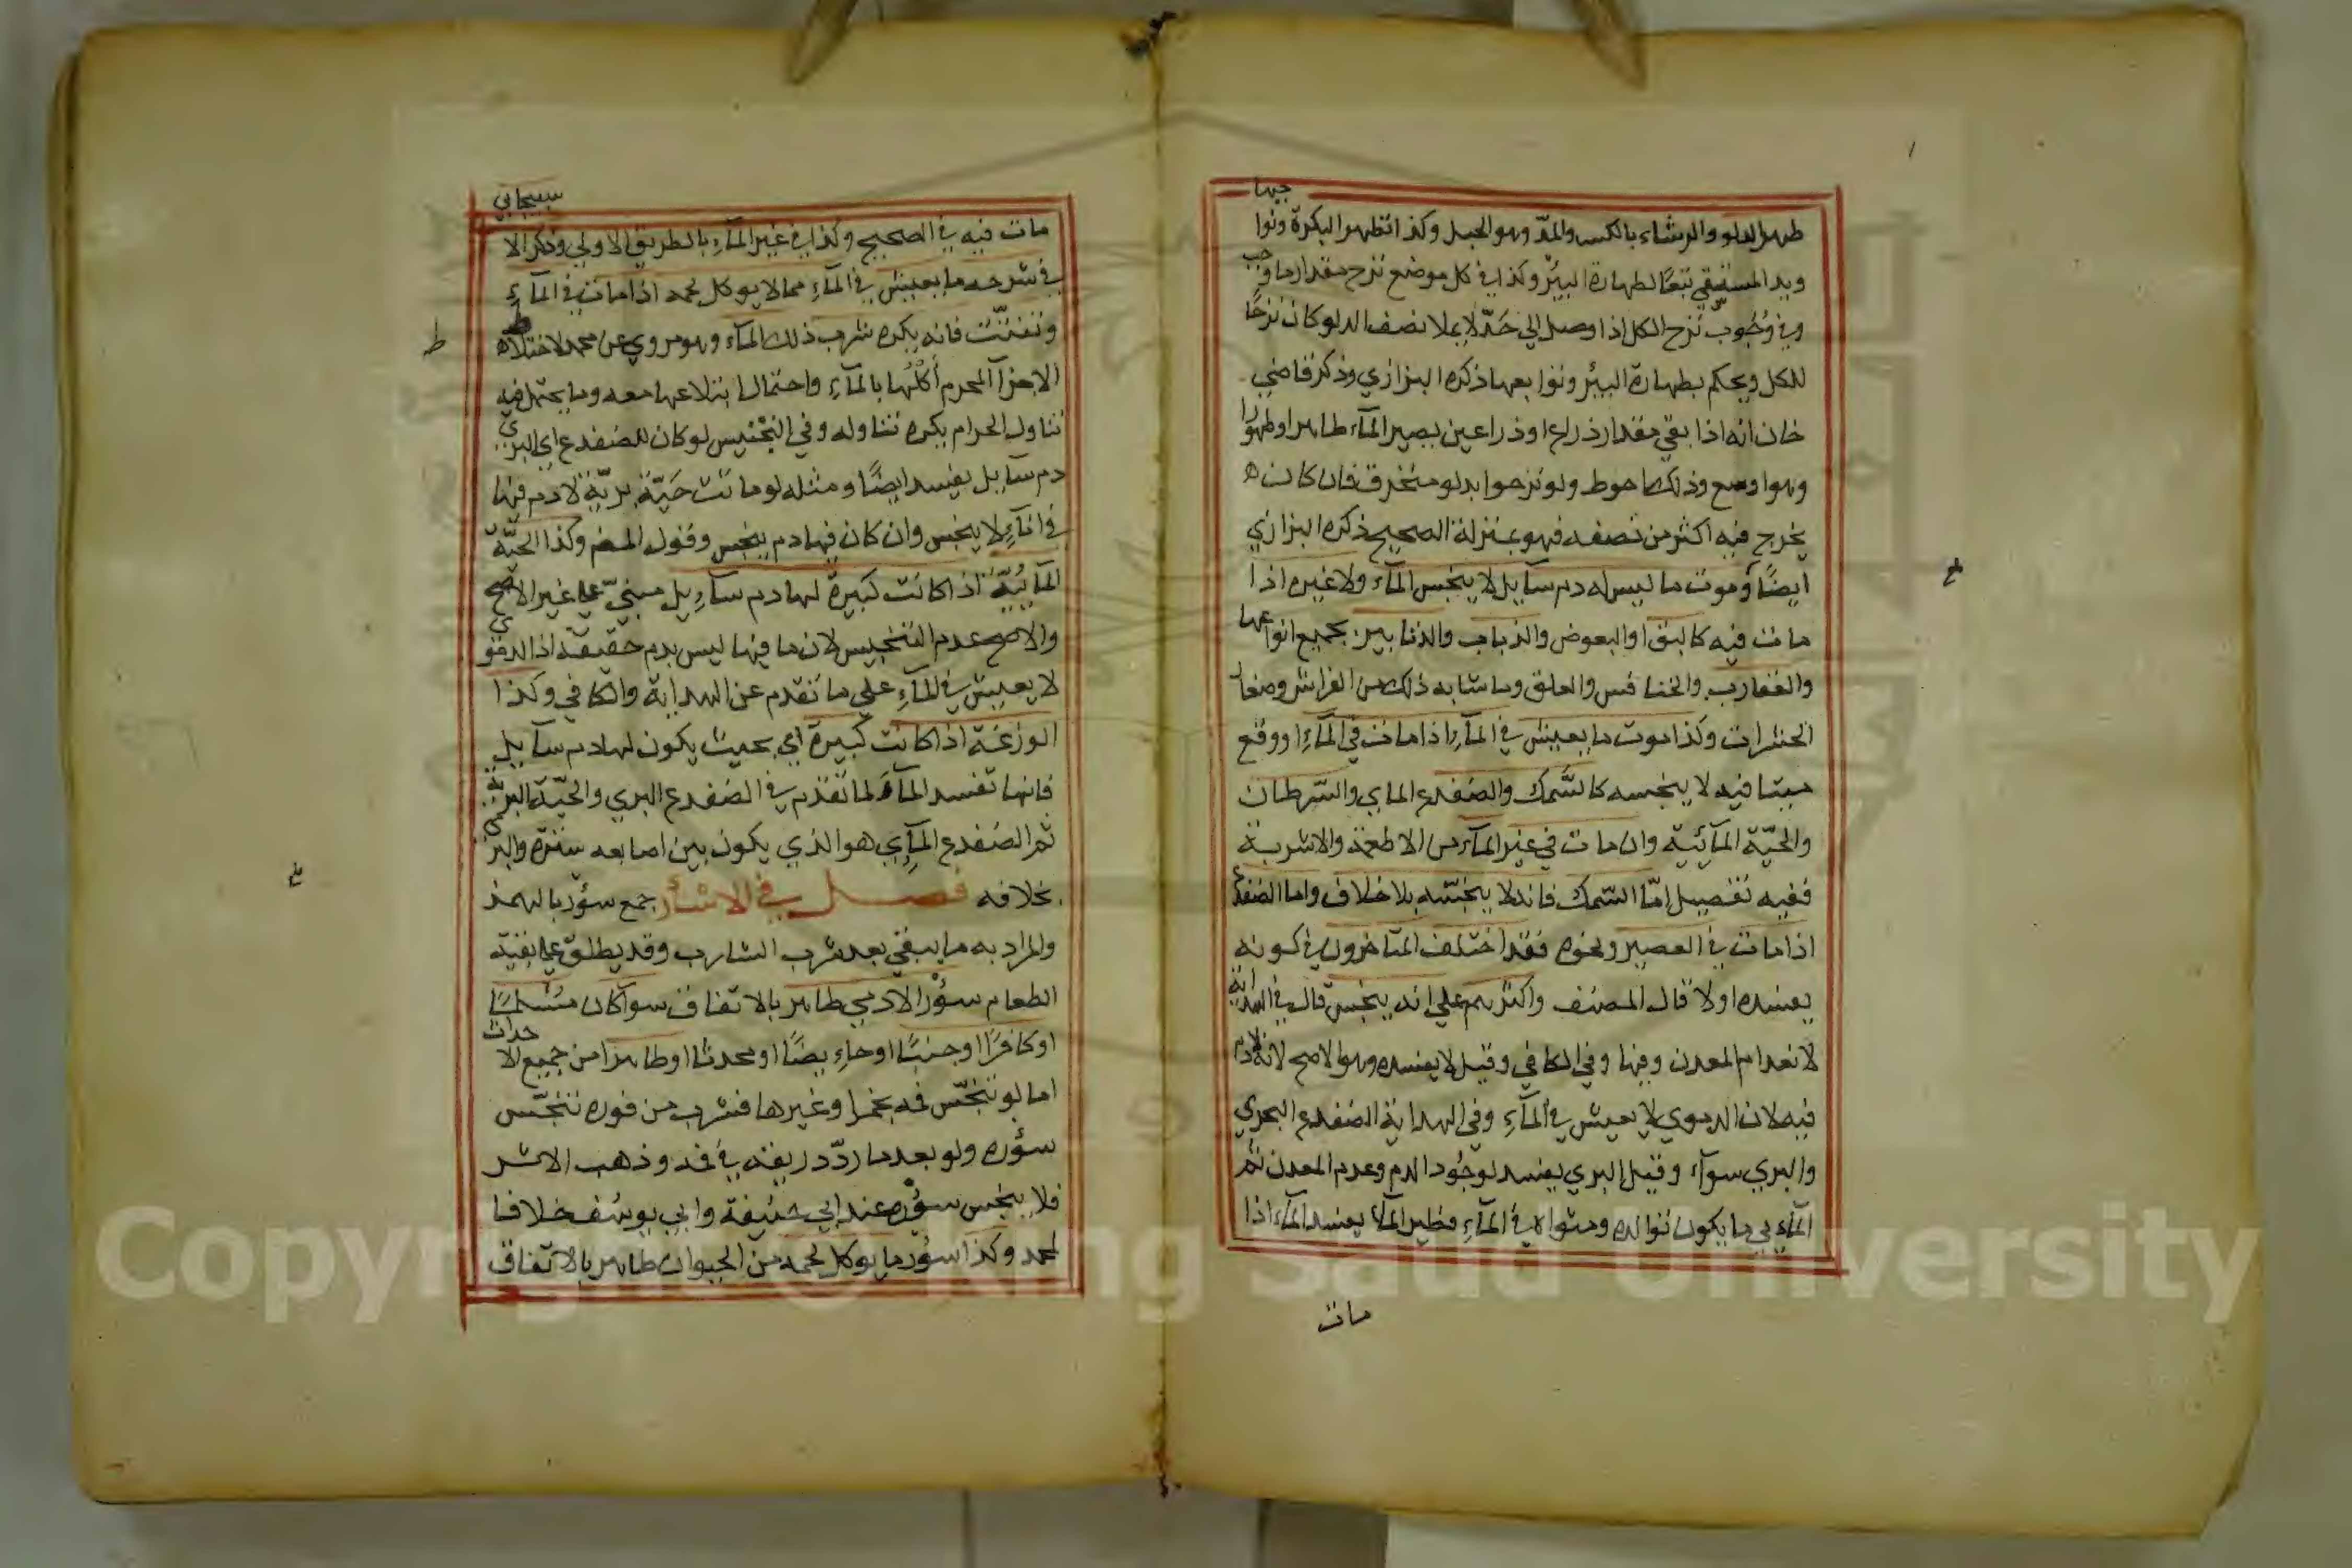 طهر الدلو والرشاء بالكسر والمد وهو الحبل وكذا تطهر البكرة ونواجيها
ويد المستقي تبعًا لطهارة البئر وكذا في كل موضع نزح مقدار ما وجب
وفي وُجُوب نزح الكل اذا وصل الي حَدّ لا يملا نصف الدلو كان نزحًا
للكل ويحكم بطهارة البئر ونوابعها ذكره البزازي وذكر قاضي
خان انه اذا بقي مقدار ذراع او ذراعين يصير الماء طاهرا وطهورا
وهو اوسع وذلك احوط ولو نزحوا بدلو منخرق فان كان
يخرج فيه اكثر من نصفه فهو بمنزلة الصحيح ذكره البزازي
ايضًا وموت ما ليس له دم سآيل لا ينجس المآء ولا غيره اذا
مات فيه كالبق والبعوض والذباب والزنابير بجميع انواعها
والعقارب والخنافس والعلق وما شابه ذلك من الفراش وصغار
الحشرات وكذا موت ما يعيش في المآء اذا مات في المآء او وقع
ميتا فيه لا ينجسه كالسَّمك والضفدع الماي والسّرطان
والحيّة المآئية وان مات في غير المآء من الاطعمة والاشربة
ففيه تفصيل امّا السّمك فانه لا ينجّسه بلا خلاف واما الضفدع
اذا مات في العصير ونحوه فقد اختلف المتاخرون في كونه
يفسده اولا قال المصنف واكثرهم علي انه ينجس قال في الهداية
لانعدام المعدن وفيها وفي الكافي وقيل لا يفسده وهو الاصح لانه لا دم
فيه لان الدموي لا يعيش في المآء وفي الهداية الضفدع البحري
والبري سوآء وقيل البري يفسد لوجُود الدم وعدم المعدن ثم
المآءي ما يكون توالده ومثواه في المآء وطير المآء يفسد المآء اذا
مات
مات فيه في الصحيح وكذا في غير المآء بالطريق الاولي وذكر الاسبيجابي
في شرحه ما يعيش في المآء مما لا يوكل لحمه اذا مات في المآء
وتفتّت فانه يكره شرب ذلك المآء وهو مروي عن محمد لاختلاط
الاجزآ المحرم أكلُها بالمآء واحتمال ابتلاعها معه وما يحتمل فيه
تناول الحرام يكره تناوله وفي التجنيس لو كان للضفدع اي البري
دم سآيل يفسد ايضًا ومثله لو ماتت حَيّة بريّة لا دم فيها
في انآء لا ينجس وان كان فيها دم ينجس وقول المصنف وكذا الحيّة
المآئيّة اذا كانت كبيرة لها دم سآيل مبنيّ علي غير الاصح
والاصح عدم التنجيس لان ما فيها ليس بدم حقيقة اذ الدموي
لا يعيش في المآء علي ما تقدم عن الهداية والكافي وكذا
الوزغة اذا كانت كبيرة اي بحيث يكون لها دم سآيل
فانها تفسد المآء لما تقدّم في الضفدع البري والحيّة البرية
ثم الضفدع المآءي هو الذي يكون بين اصابعه سترة والبري
بخلافه فصل في الاسئار جمع سؤر بالهمز
والمراد به ما يبقي بعد شرب الشارب وقد يطلق علي بقية
الطعام سؤر الادمي طاهر بالاتفاق سوآ كان مسْلمًا
او كافرًا او جنبًا او حاءيضًا او محدثا او طاهرا من جميع الاحداث
اما لو تنجّس فمه بخمر او غيرها فشرب من فوره تنجّس
سؤره ولو بعد ما ردّد ريقه في فمه وذهب الاثر
فلا ينجس سؤره عند ابي حنيفة وابي يوسف خلافا
لمحمد وكذا سؤر ما يوكل لحمه من الحيوان طاهر بالاتفاق